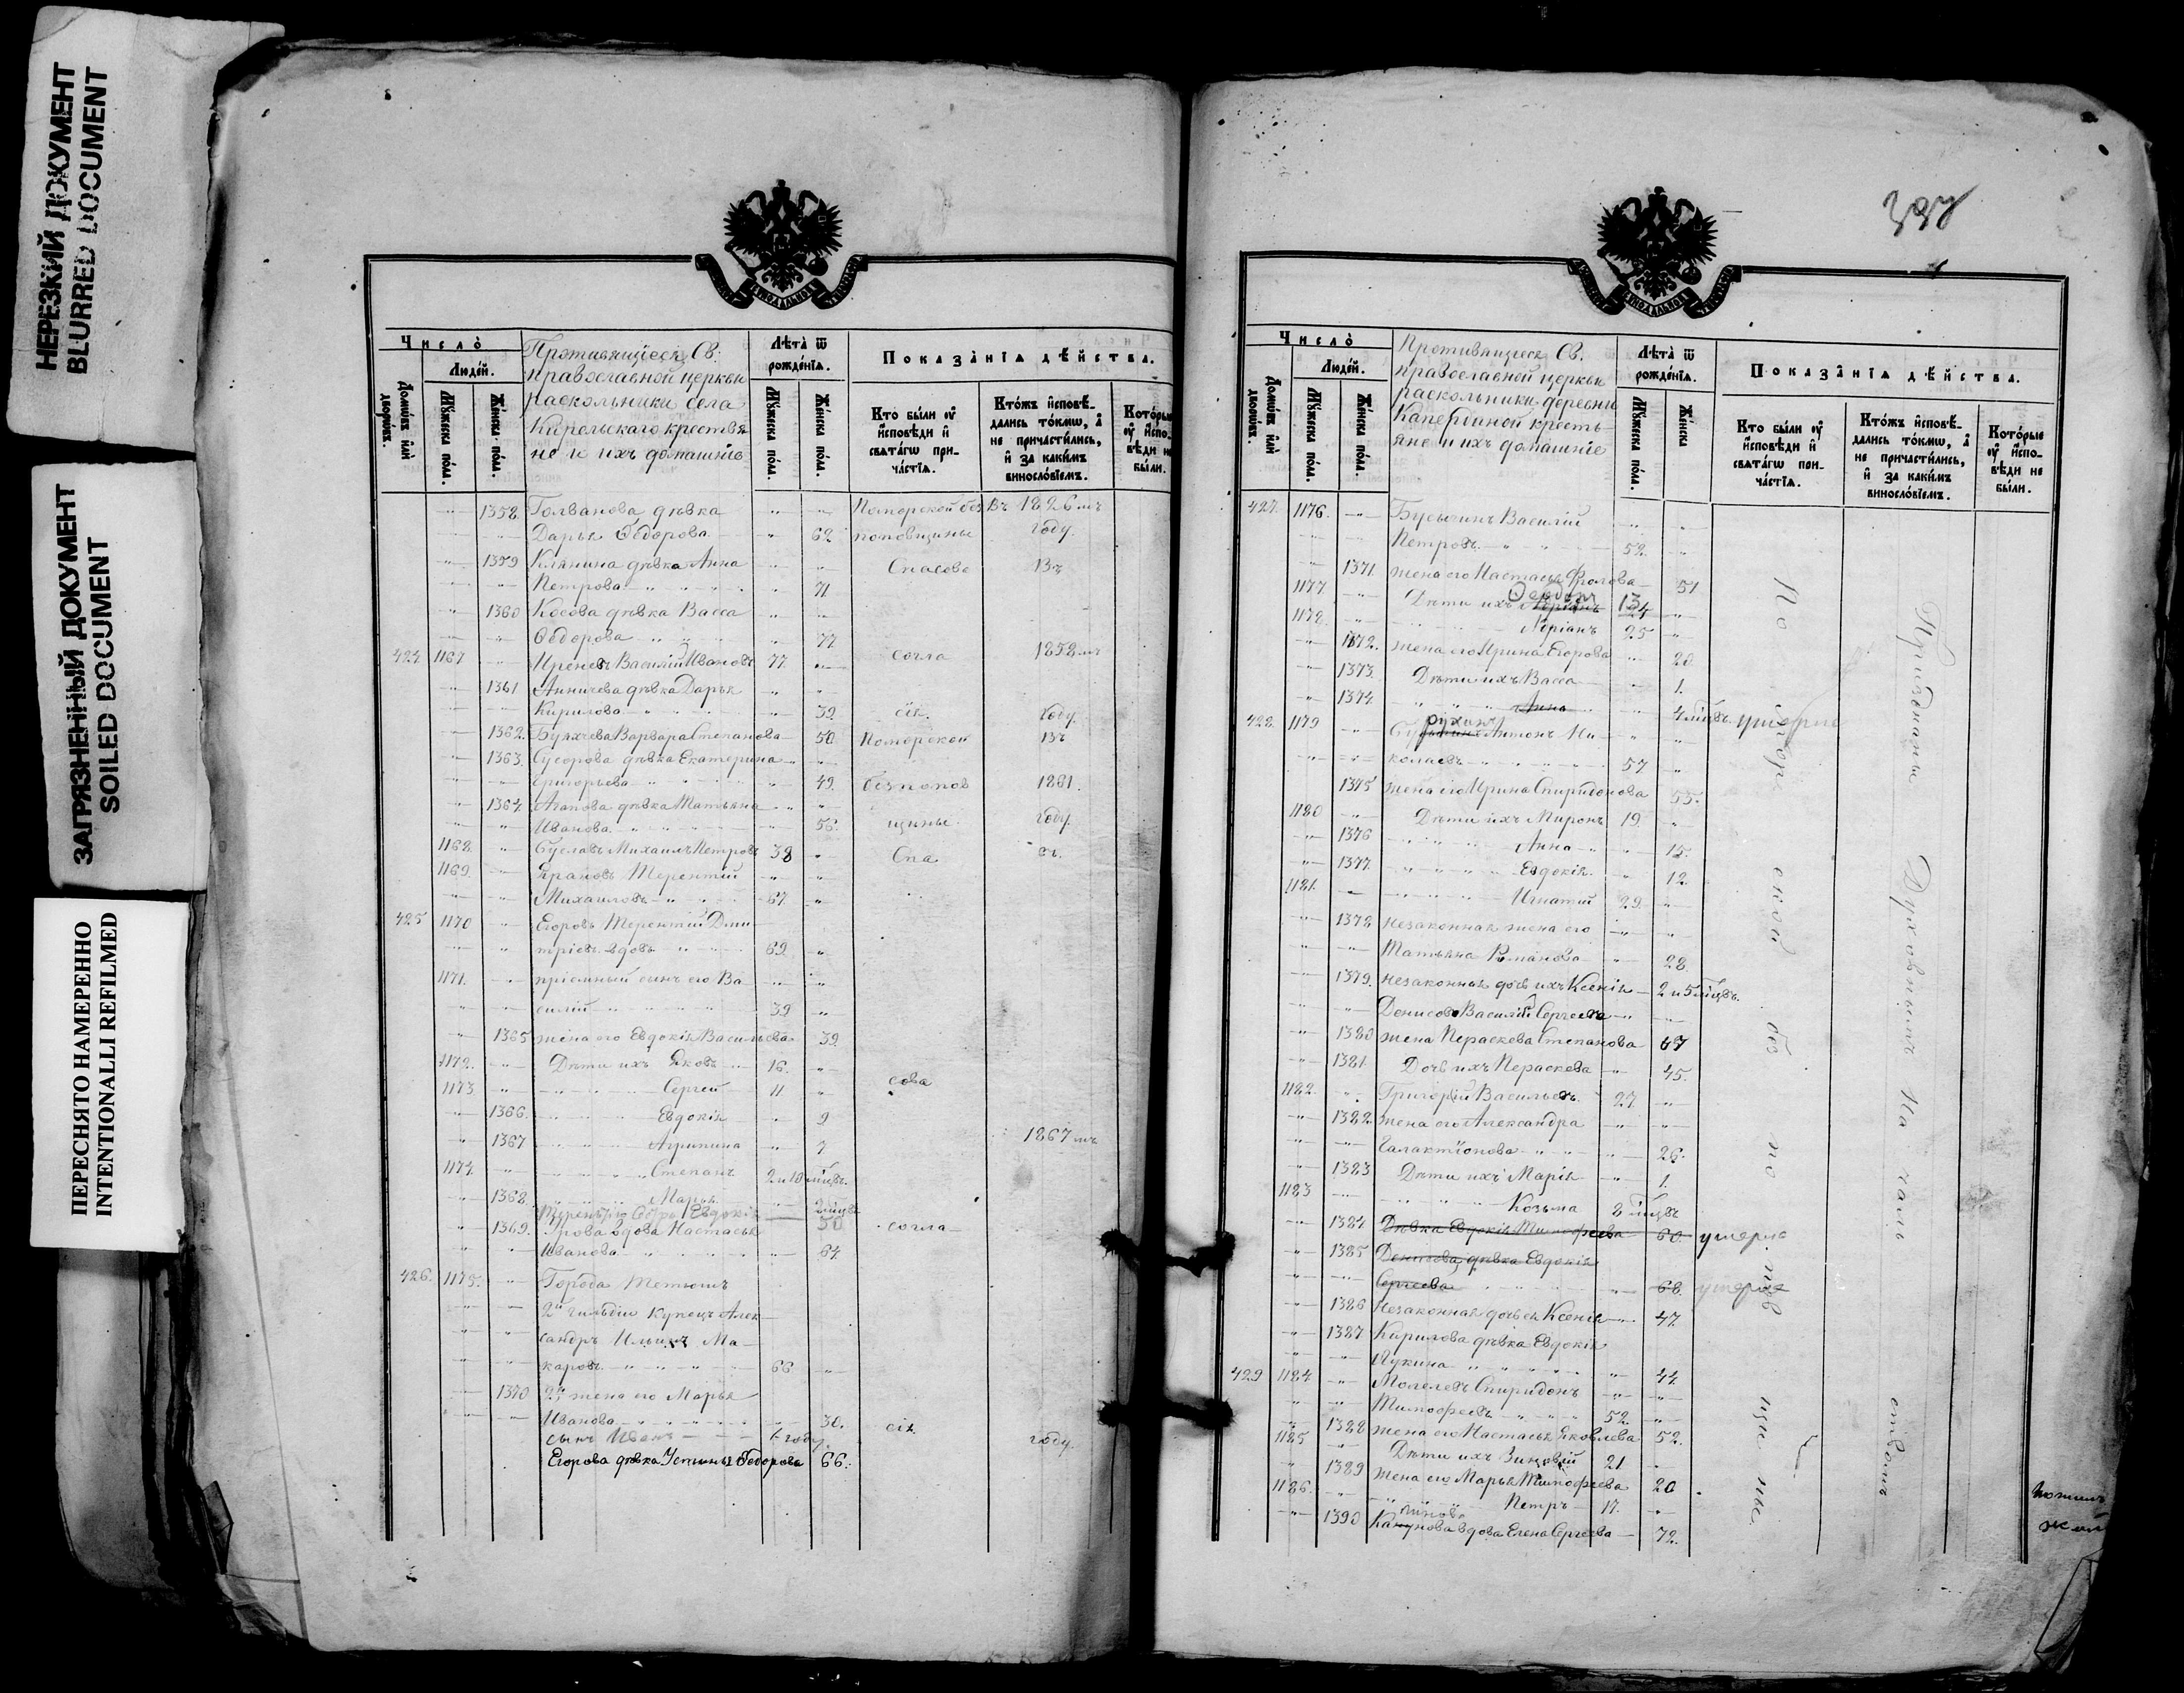 НЕРЕЗКИЙ ДОКУМЕНТ
BLURRED DOCUMENT
ЗАГРЯЗНЕННЫЙ ДОКУМЕНТ
SOILED DOCUMENT
ПЕРЕСНЯТО НАМЕРЕННО
INTENTIONALLI REFILMED
Число
Людей.
Домовъ или дворовъ.
Мужеска пола.
Женска пола.
Противящіеся Св.
православной церкви
раскольники села
Кирельскаго крестья
не и ихъ домашніе
Лѣта ѿ рожденїя.
Мужеска пола.
Женска пола.
Показанїя дѣйства.
Кто были оу исповѣди и свѧтагѡ причастїѧ.
Ктожъ исповѣдались токмѡ, а не причастились, и за какимъ винословїемъ.
Которые оу исповѣди не были.
1358. Голванова дѣвка Поморской без Въ 1826 мъ
Дарья Ѳедорова 62 поповщины году.
1359 Клянина дѣвка Анна Спасово Въ
Петрова 71
1360 Косова дѣвка Васса
Ѳедорова 77
424. 1167 Иреневъ Василій Ивановъ 77 согла 1858 мъ
1361 Анничева дѣвка Дарья
Кирилова 39. сія. году.
1362. Буяхчева Варвара Степанова 50 Поморской Въ
1363. Сусорова дѣвка Екатерина
Григорьева 49. безпопов 1881.
1364. Агапова дѣвка Татьяна
Иванова 56. щины. году.
1168. Буславъ Михаилъ Петровъ 38 Спа
1169. Ярановъ Терентій
Михаиловъ 67.
425 1170 Егоровъ Терентій Дми
тріевъ вдовъ 69.
1171. пріемный сынъ его Ва
силій 39
1365 жена его Евдокія Васильева 39.
1172. Дѣти ихъ Яковъ 16.
1173 Сергей 11 сова
1366. Евдокія 9
1367 Агрипина 7 1867 мъ
1174. Степанъ 2 и 10 мѣцвъ.
1368. Марья
Евдокія 50
1369. вдова Настасья согла
Иванова 64.
426. 1175. Города Тетюшъ
2й гильдіи Купецъ Алек
сандръ Ильичъ Ма
каровъ 66
1370 2я жена его Марья
Иванова 30. сія
сынъ Иванъ 1 году. году.
Егорова дѣвка Устинья Ѳедорова 66.
392
Число
Людей.
Домовъ или дворовъ.
Мужеска пола.
Женска пола.
Противящіеся Св.
православной церкви
раскольники деревни
Капердиной кресть-
яне и ихъ домашніе
Лѣта ѿ рожденїя.
Мужеска пола.
Женска
Показанїя дѣйства.
Кто были оу исповѣди и свѧтагѡ причастїѧ.
Ктожъ исповѣдались токмѡ, а не причастились, и за какимъ винословїемъ.
Которые оу исповѣди не были.
427. 1176. Бусычинъ Василій
Петровъ 52.
1371. жена его Настасья Фролова 51
1177. Дѣти ихъ 13
1178. 25
1372. жена его Ирина Егорова 20.
1373. Дѣти ихъ Васса 1.
1374. Анна умерла
428. 1179 Антонъ Ни
колаевъ 57
1375 жена его Ирина Спиридонова 55.
1180 Дѣти ихъ Миронъ 19.
1376 Анна 15.
1377. Евдокія 12.
1181. Игнатій 29.
1378 незаконная жена его
Татьяна Романова 28.
1379. незаконная дочь ихъ Ксенія 2 и 5 мѣцвъ.
Денисовъ Василій Сергеевъ
1380 жена Пераскева Степанова 67
1381. Дочь ихъ Пераскева 45.
1182. Григорій Васильевъ 27.
1382. жена его Александра
Галактіонова 26.
1383 Дѣти ихъ Марія 1.
1183 Козьма 8 мѣцвъ
1384 Дѣвка Евдокія Тимофеева 60. умерла
1385 Денисова дѣвка Евдокія
Сергеева 68. умерла
1386 незаконная дочь ея Ксенія 47.
1387 Кирилова дѣвка Евдокія
Лукина 44.
429 1184. Молелевъ Спиридонъ
Тимофеевъ 52.
1388 жена его Настасья Яковлева 52.
1185 Дѣти ихъ Зиновій 21
1389 жена его Марья Тимофеева 20
1186. Петръ 17.
1390 вдова Елена Сергеева 72.
По помор ской без по пов щи не.
Преданы Духовнымъ На чаль ствомъ